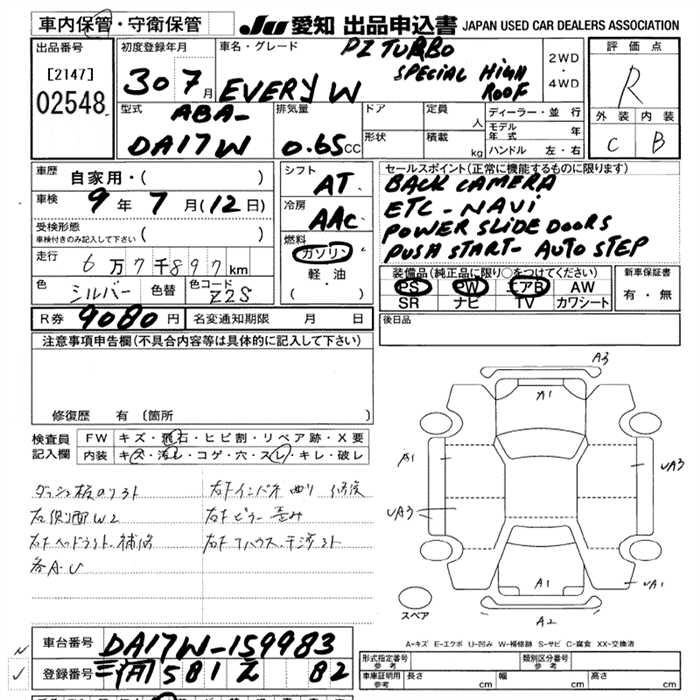 車内保管・守衛保管
JU 愛知 出品申込書 JAPAN USED CAR DEALERS ASSOCIATION
出品番号
[2147]
02548
初度登録年月
30 7月
車名・グレード
PZ TURBO
SPECIAL HIGH ROOF
EVERY W
2WD
・
4WD
評価点
R
外装 内装
C B
型式
ABA-
DA17W
排気量
0.65 CC
ドア
形状
定員
人
積載
kg
ディーラー・並行
モデル年式
年
ハンドル 左・右
車歴
自家用・( )
車検
9年7月(12日)
受検形態
車検付きのみ記入して下さい ( )
走行
6万7千897km
色
シルバー
色替
色コード
Z2S
シフト
AT
冷房
AAC
燃料
ガソリン
・
軽油
( ・ )
セールスポイント(正常に機能するものに限ります)
BACK CAMERA
ETC - NAVi
POWER SLIDE DOORS
PUSH START - AUTO STEP
装備品(純正品に限り○をつけてください)
PS PW エアB AW
SR ナビ TV カワシート
新車保証書
有・無
R券 9080円
名変通知期限 月 日
後日品
注意事項申告欄(不具合内容等は具体的に記入して下さい)
修復歴 有 〔箇所 〕
検査員記入欄
FW キズ・飛石・ヒビ割・リペア跡・X要
内装 キズ・汚レ・コゲ・穴・スレ・キレ・破レ
右インパネ曲り 修復
右側面W2
右ヘッドライト補修
各A・U
右ピラー歪み
A3
A1
A1
UA3
UA3
A1
UA1
A2
スペア
A-キズ E-エクボ U-凹み W-補修跡 S-サビ C-腐食 XX-交換済
車台番号
DA17W-159983
登録番号
三河 581 え 82
形式指定番号
参考
類別区分番号
参考
車庫証明用
参考
長さ cm
幅 cm
高さ cm